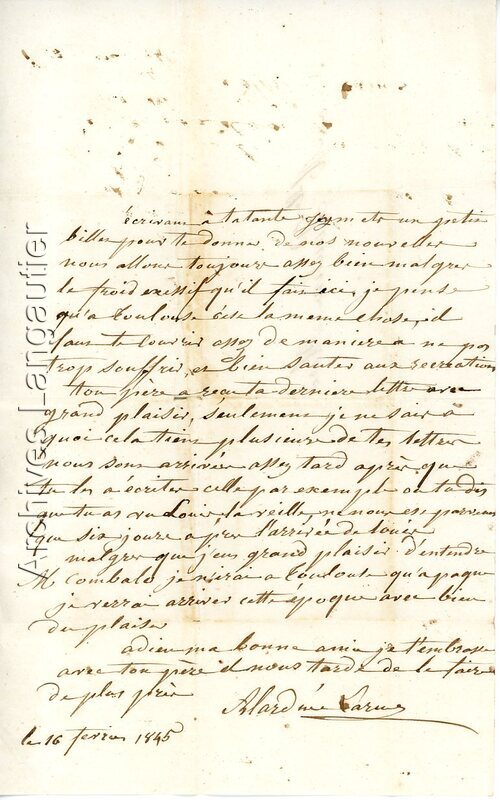 écrivant à ta tante j'y mets un petit
billet pour te donner de nos nouvelles
nous allons toujours assez bien malgré
le froid exissif qu'il fait ici, je pense
qu'a toulouse c'est la meme chose, il
faut te couvrir assez de maniere a ne pas
trop souffrir, et bien sauter aux recreations
ton père a reçu ta derniere lettre avec
grand plaisir, seulement je ne sais à
quoi cela tien plusieurs de tes lettres
nous sont arrivées assez tard après que
tu les a écrites celle par exemple ou tu dis
que tu as vu Louis la veille ne nous est parvenu
que six jours après l'arrivée de Louis
malgré que j'eus grand plaisir d'entendre
Mr Combalo je n'irai a toulouse qu'a paque
je verrai arriver cette epoque avec bien
du plaisir
adieu ma bonne amie je t'embrasse
avec ton père il nous tarde de le faire
de plus près
Alard née
le 16 fevrier 1845
Archives Langautier